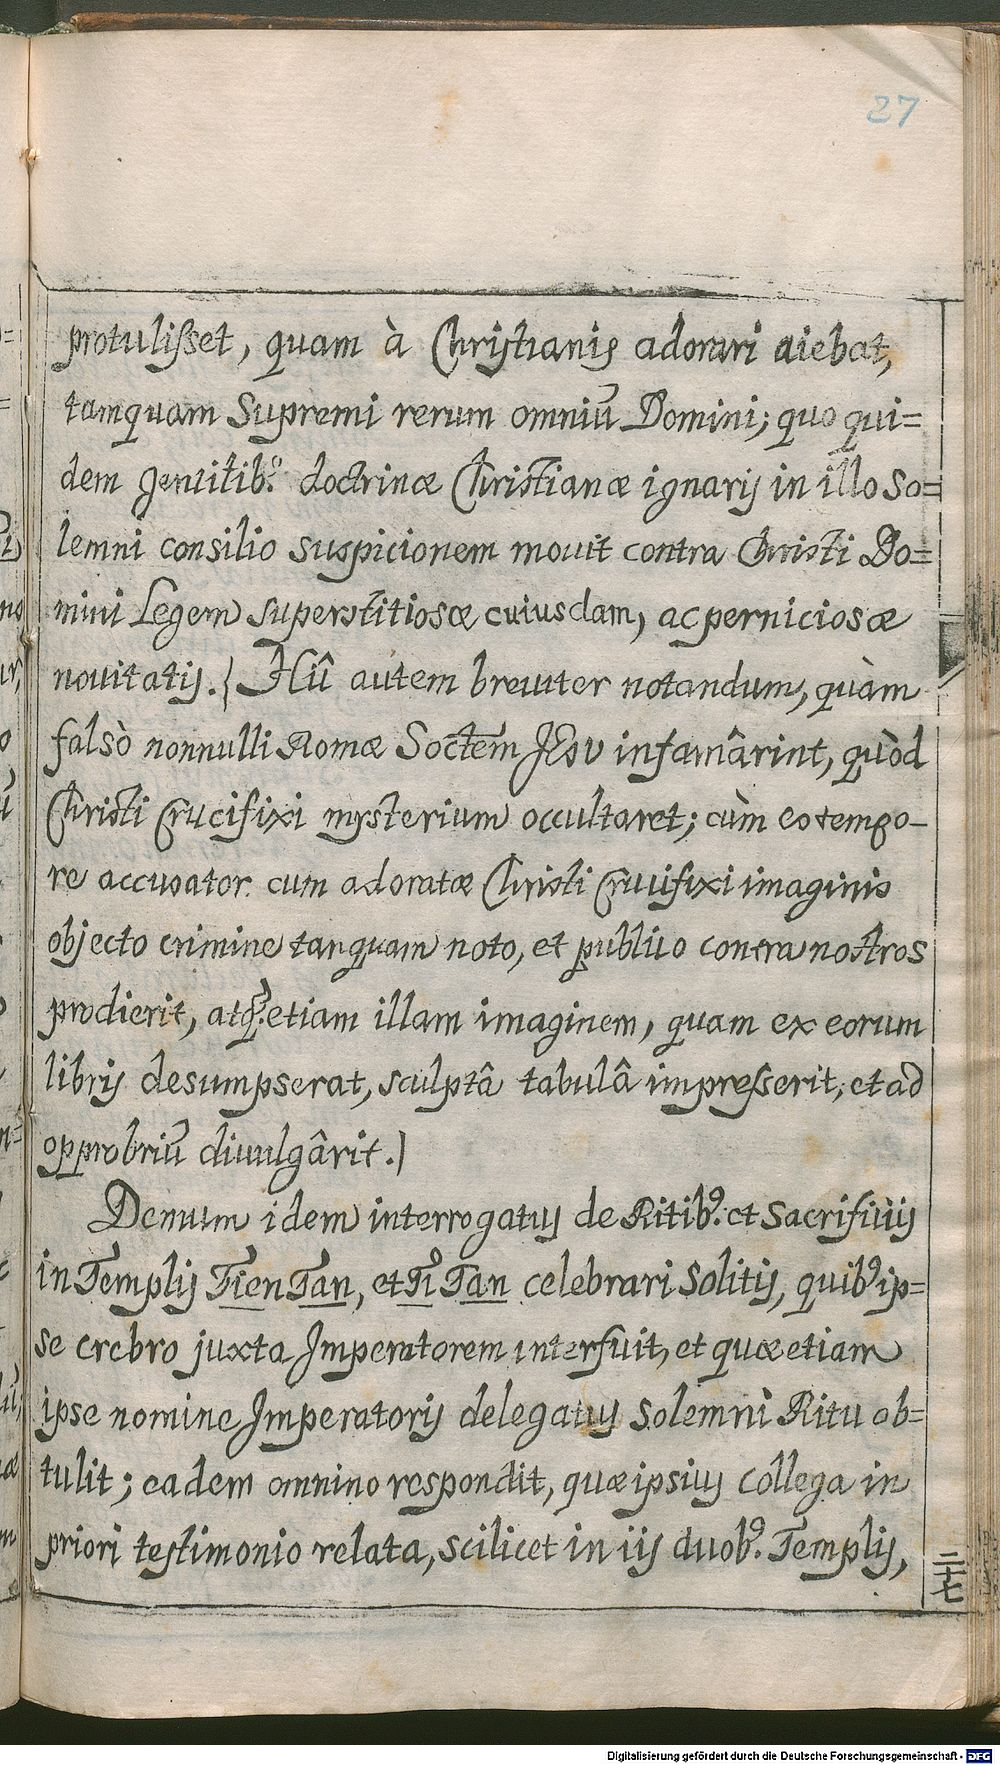 27
protulisset, quam à Christianis adorari aiebat,
tamquam Supremi rerum omniū Domini; quo qui=
dem gentilib.⁹ doctrinæ Christianæ ignaris in illo So=
lemni consilio suspicionem movit contra Christi Do=
mini Legem superstitiosæ cuiusdam, ac perniciosæ
novitatis. [Hîc autem breviter notandum, quàm
falsò nonnulli Romæ Soctem JESV infamârint, quòd
Christi Crucifixi mysterium occultaret; cùm eo tempo-
re accusator cum adoratæ Christi Crucifixi imaginis
objecto crimine tanquam noto, et publico contra nostros
prodierit, atq; etiam illam imaginem, quam ex eorum
libris desumpserat, sculptâ tabulâ impresserit, et ad
opprobriū divulgârit.]
Demum idem interrogatus de Ritib⁹. et Sacrificiis
in Templis Tien Tan, et Ti Tan celebrari solitis, quib⁹ ip=
se crebro juxta Imperatorem interfuit, et quæ etiam
ipse nomine Imperatoris delegatus solemni Ritu ob=
tulit; eadem omnino respondit, quæ ipsius collega in
priori testimonio relata, scilicet in iis duob⁹. Templis,
二十七
Digitalisierung gefördert durch die Deutsche Forschungsgemeinschaft - DFG